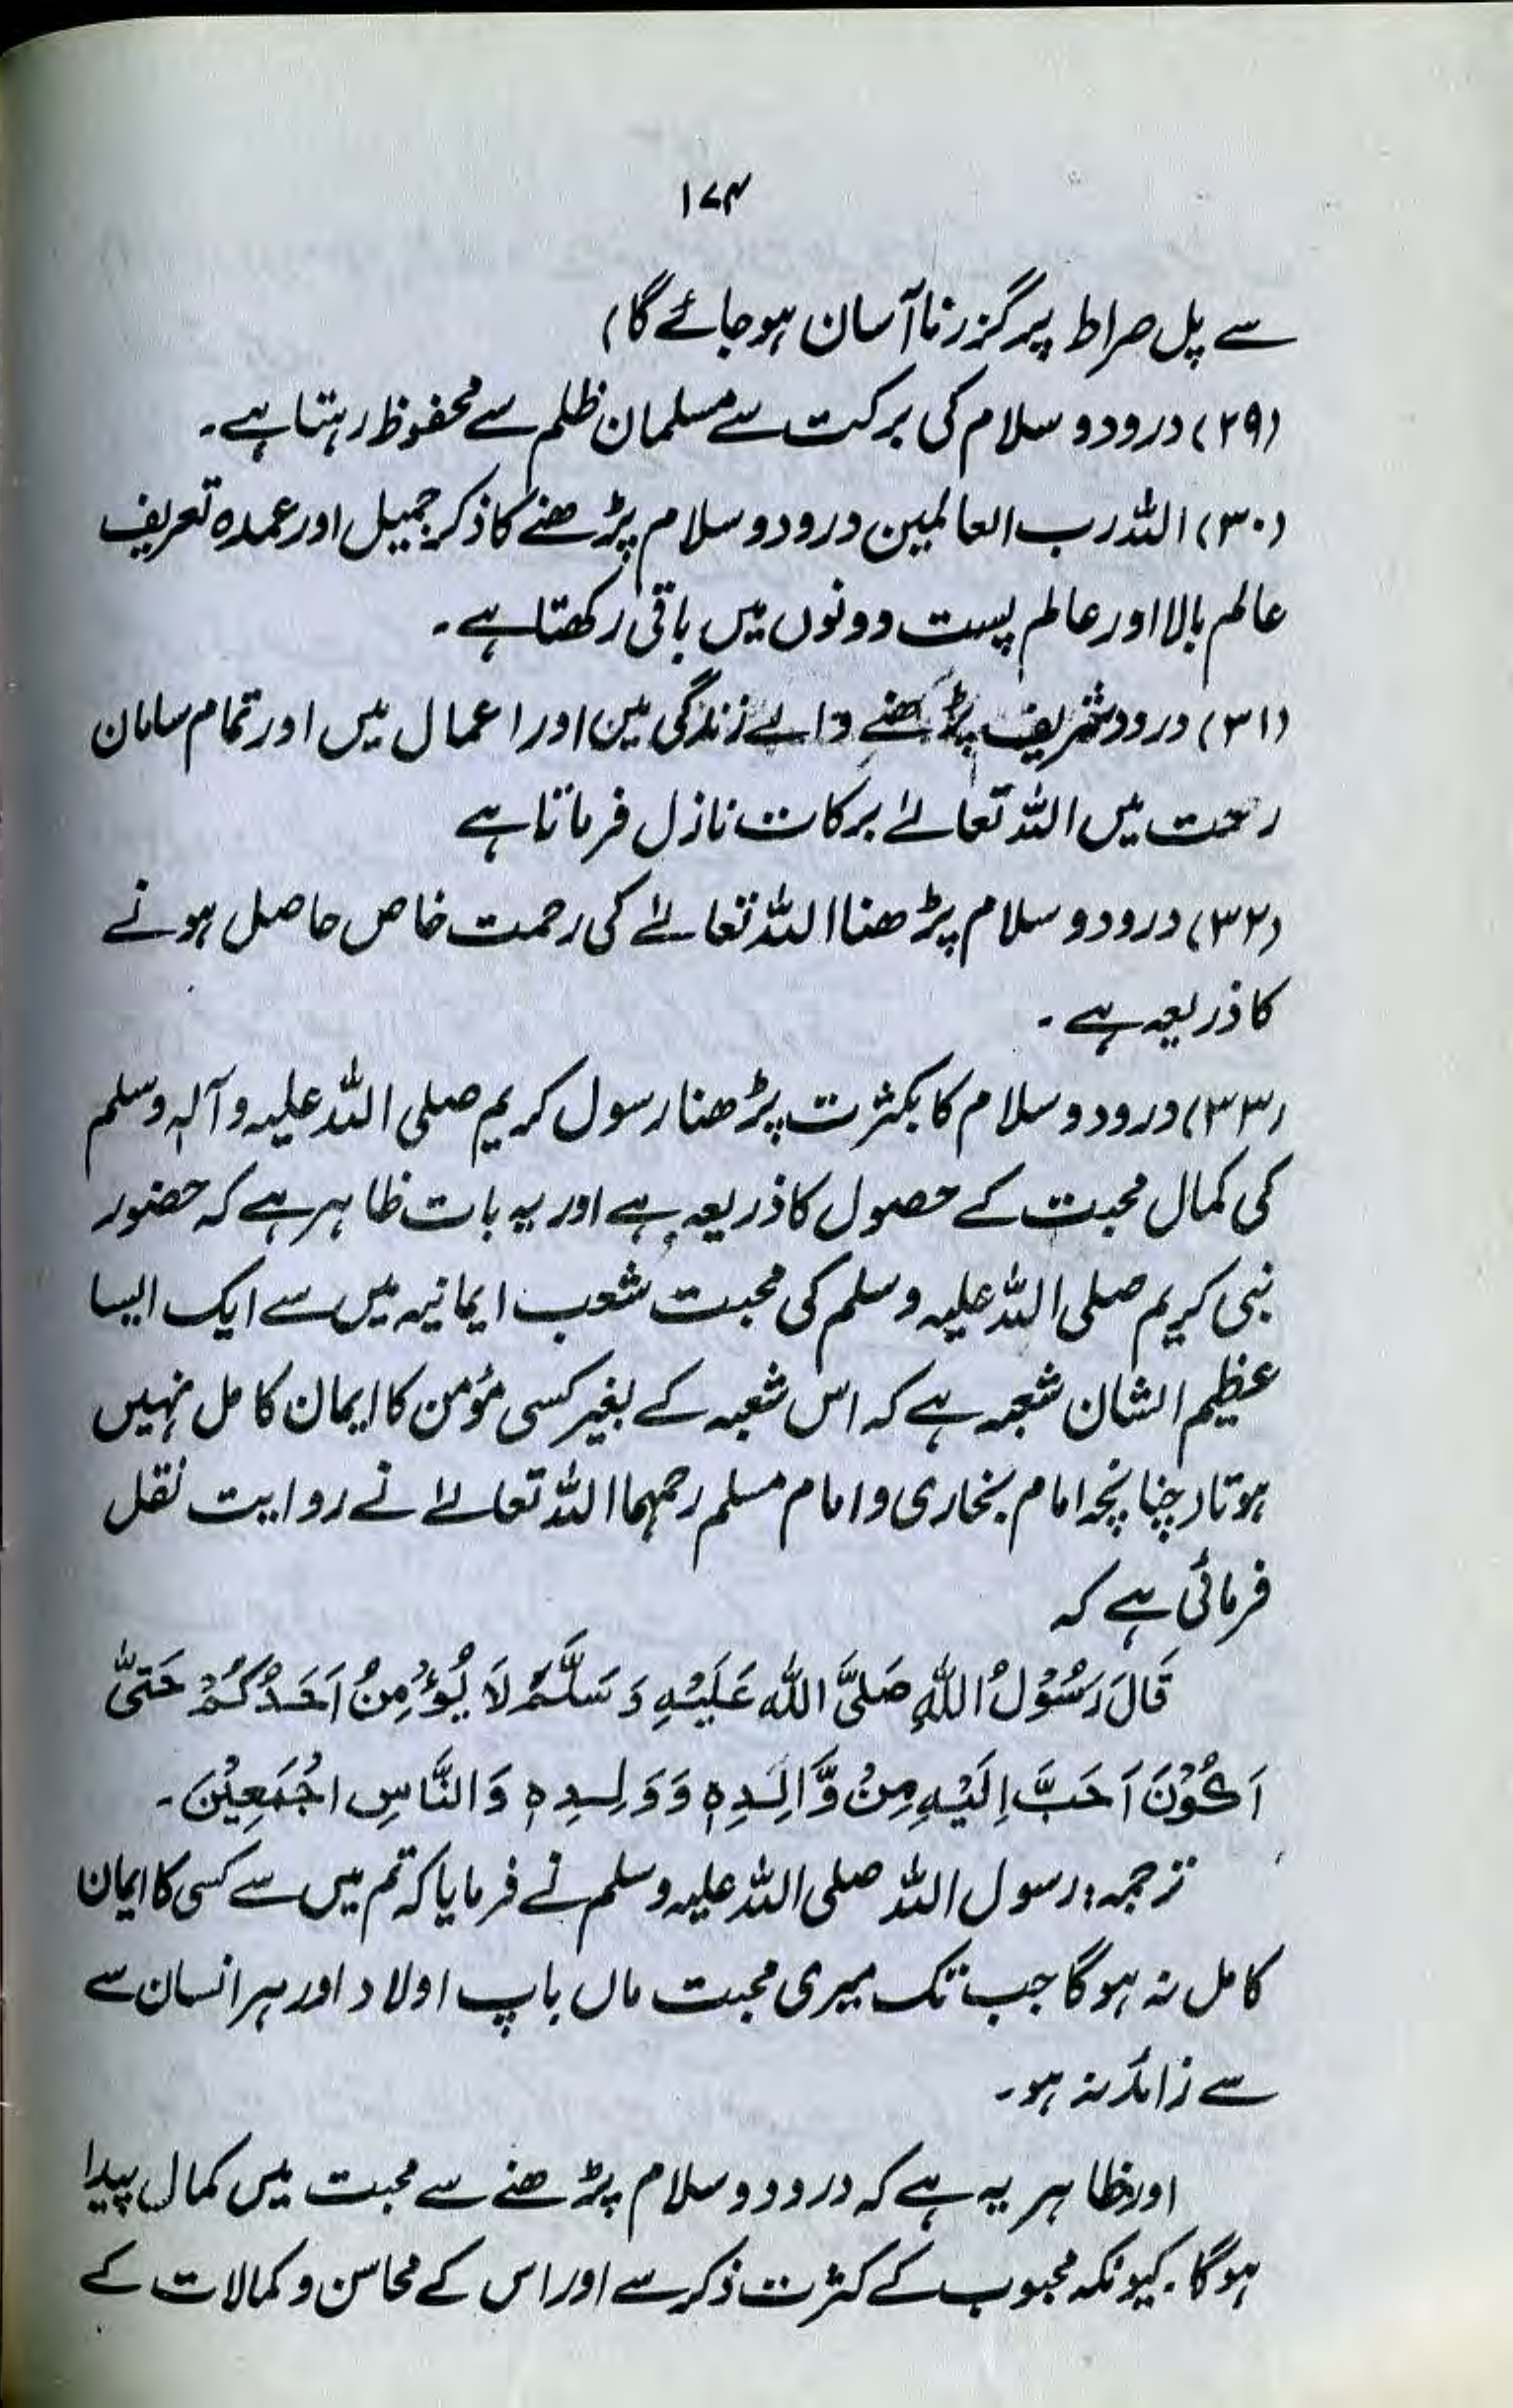 ۱۷۴
سے پل صراط پر گزرنا آسان ہو جائے گا)
(۲۹) درود و سلام کی برکت سے مسلمان ظلم سے محفوظ رہتا ہے۔
(۳۰) اللہ رب العالمین درود و سلام پڑھنے کا ذکر جمیل اور عمدہ تعریف
عالم بالا اور عالم پست دونوں میں باقی رکھتا ہے۔
(۳۱) درود شریف پڑھنے والے زندگی میں اور اعمال میں اور تمام سامان
رحمت میں اللہ تعالےٰ برکات نازل فرماتا ہے
(۳۲) درود و سلام پڑھنا اللہ تعالےٰ کی رحمت خاص حاصل ہونے
کا ذریعہ ہے۔
(۳۳) درود و سلام کا بکثرت پڑھنا رسول کریم صلی اللہ علیہ وآلہ وسلم
کی کمال محبت کے حصول کا ذریعہ ہے اور یہ بات ظاہر ہے کہ حضور
نبی کریم صلی اللہ علیہ وسلم کی محبت شعب ایمانیہ میں سے ایک ایسا
عظیم الشان شعبہ ہے کہ اس شعبہ کے بغیر کسی مؤمن کا ایمان کامل نہیں
ہوتا۔ چنانچہ امام بخاری و امام مسلم رحمہما اللہ تعالےٰ نے روایت نقل
فرمائی ہے کہ
قَالَ رَسُوْلُ اللّٰهِ صَلَّى اللّٰه عَلَيْهِ وَسَلَّمْ لَا يُؤْمِنُ اَحَدُكُمْ حَتّٰى
اَكُوْنَ اَحَبَّ اِلَيْهِ مِنْ وَّالِدِهٖ وَوَلِدِهٖ وَالنَّاسِ اجْمَعِيْنَ۔
ترجمہ: رسول اللہ صلی اللہ علیہ وسلم نے فرمایا کہ تم میں سے کسی کا ایمان
کامل نہ ہوگا جب تک میری محبت ماں باپ اولاد اور ہر انسان سے
سے زائد نہ ہو۔
اور ظاہر یہ ہے کہ درود و سلام پڑھنے سے محبت میں کمال پیدا
ہوگا۔ کیونکہ محبوب کے کثرت ذکر سے اور اس کے محاسن و کمالات کے